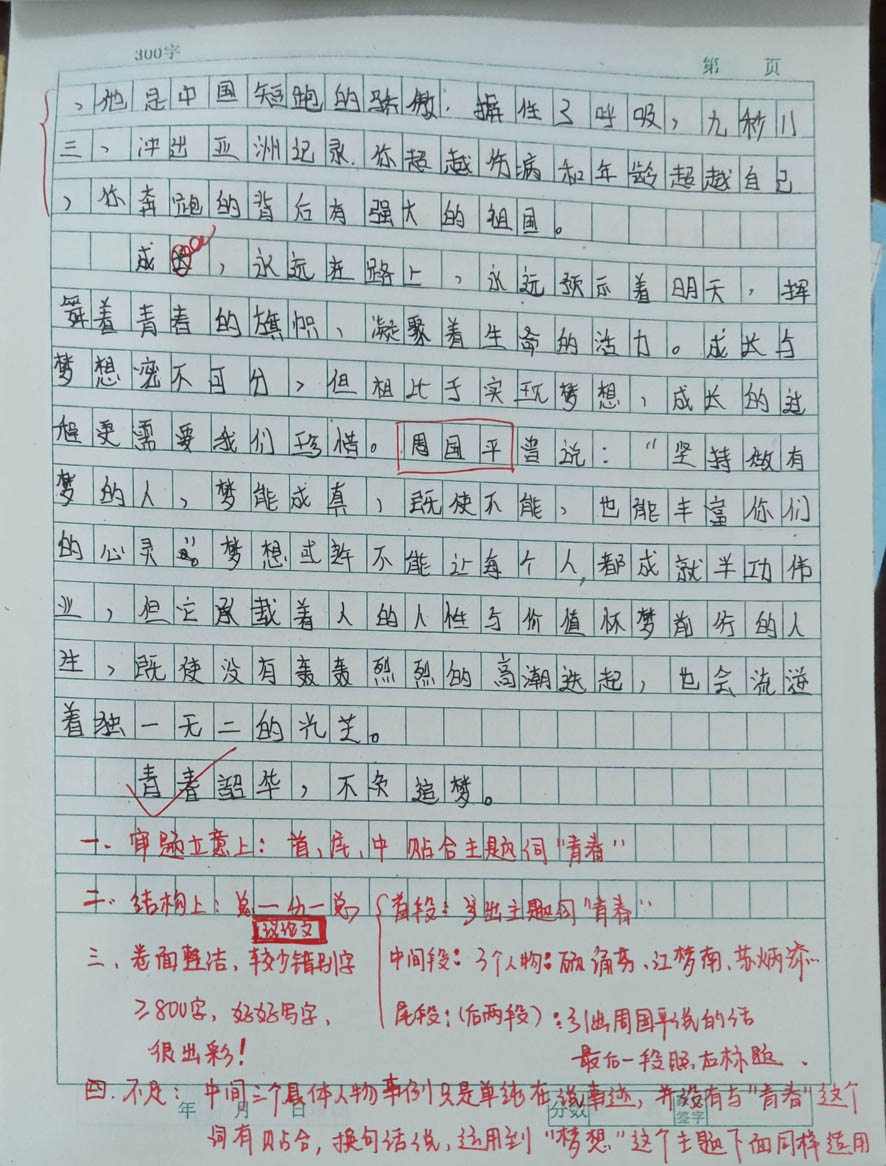 300字
第 页
，他是中国短跑的骄傲，摒住了呼吸，九秒八
三，冲出亚洲记录.你超越伤病和年龄超越自己
，你奔跑的背后有强大的祖国。
成，永远在路上，永远预示着明天，挥
舞着青春的旗帜，凝聚着生命的活力。成长与
梦想密不可分，但相比于实现梦想，成长的过
程更需要我们珍惜。周国平曾说：“坚持做有
梦的人，梦能成真，既使不能，也能丰富你们
的心灵”。梦想或许不能让每个人，都成就丰功伟
业，但它承载着人的人性与价值怀梦前行的人
生，既使没有轰轰烈烈的高潮迭起，也会流逆
着独一无二的光芒。
青春韶华，不负追梦。
一、审题立意上：首、尾、中贴合主题词“青春”
二、结构上：总一分一总 首段：引出主题词“青春”
议论文
三、卷面整洁、较少错别字 中间段：3个人物：、江梦南、苏炳添…
≥800字，好好写字， 尾段：(后两段)：引出周国平说的话
很出彩！ 最后一段照应标题.
四.不足：中间三个具体人物事例只是单纯在说事迹，并没有与“青春”这个
年 月 日 分数 签字
词有贴合，换句话说，运用到“梦想”这个主题下面同样适用